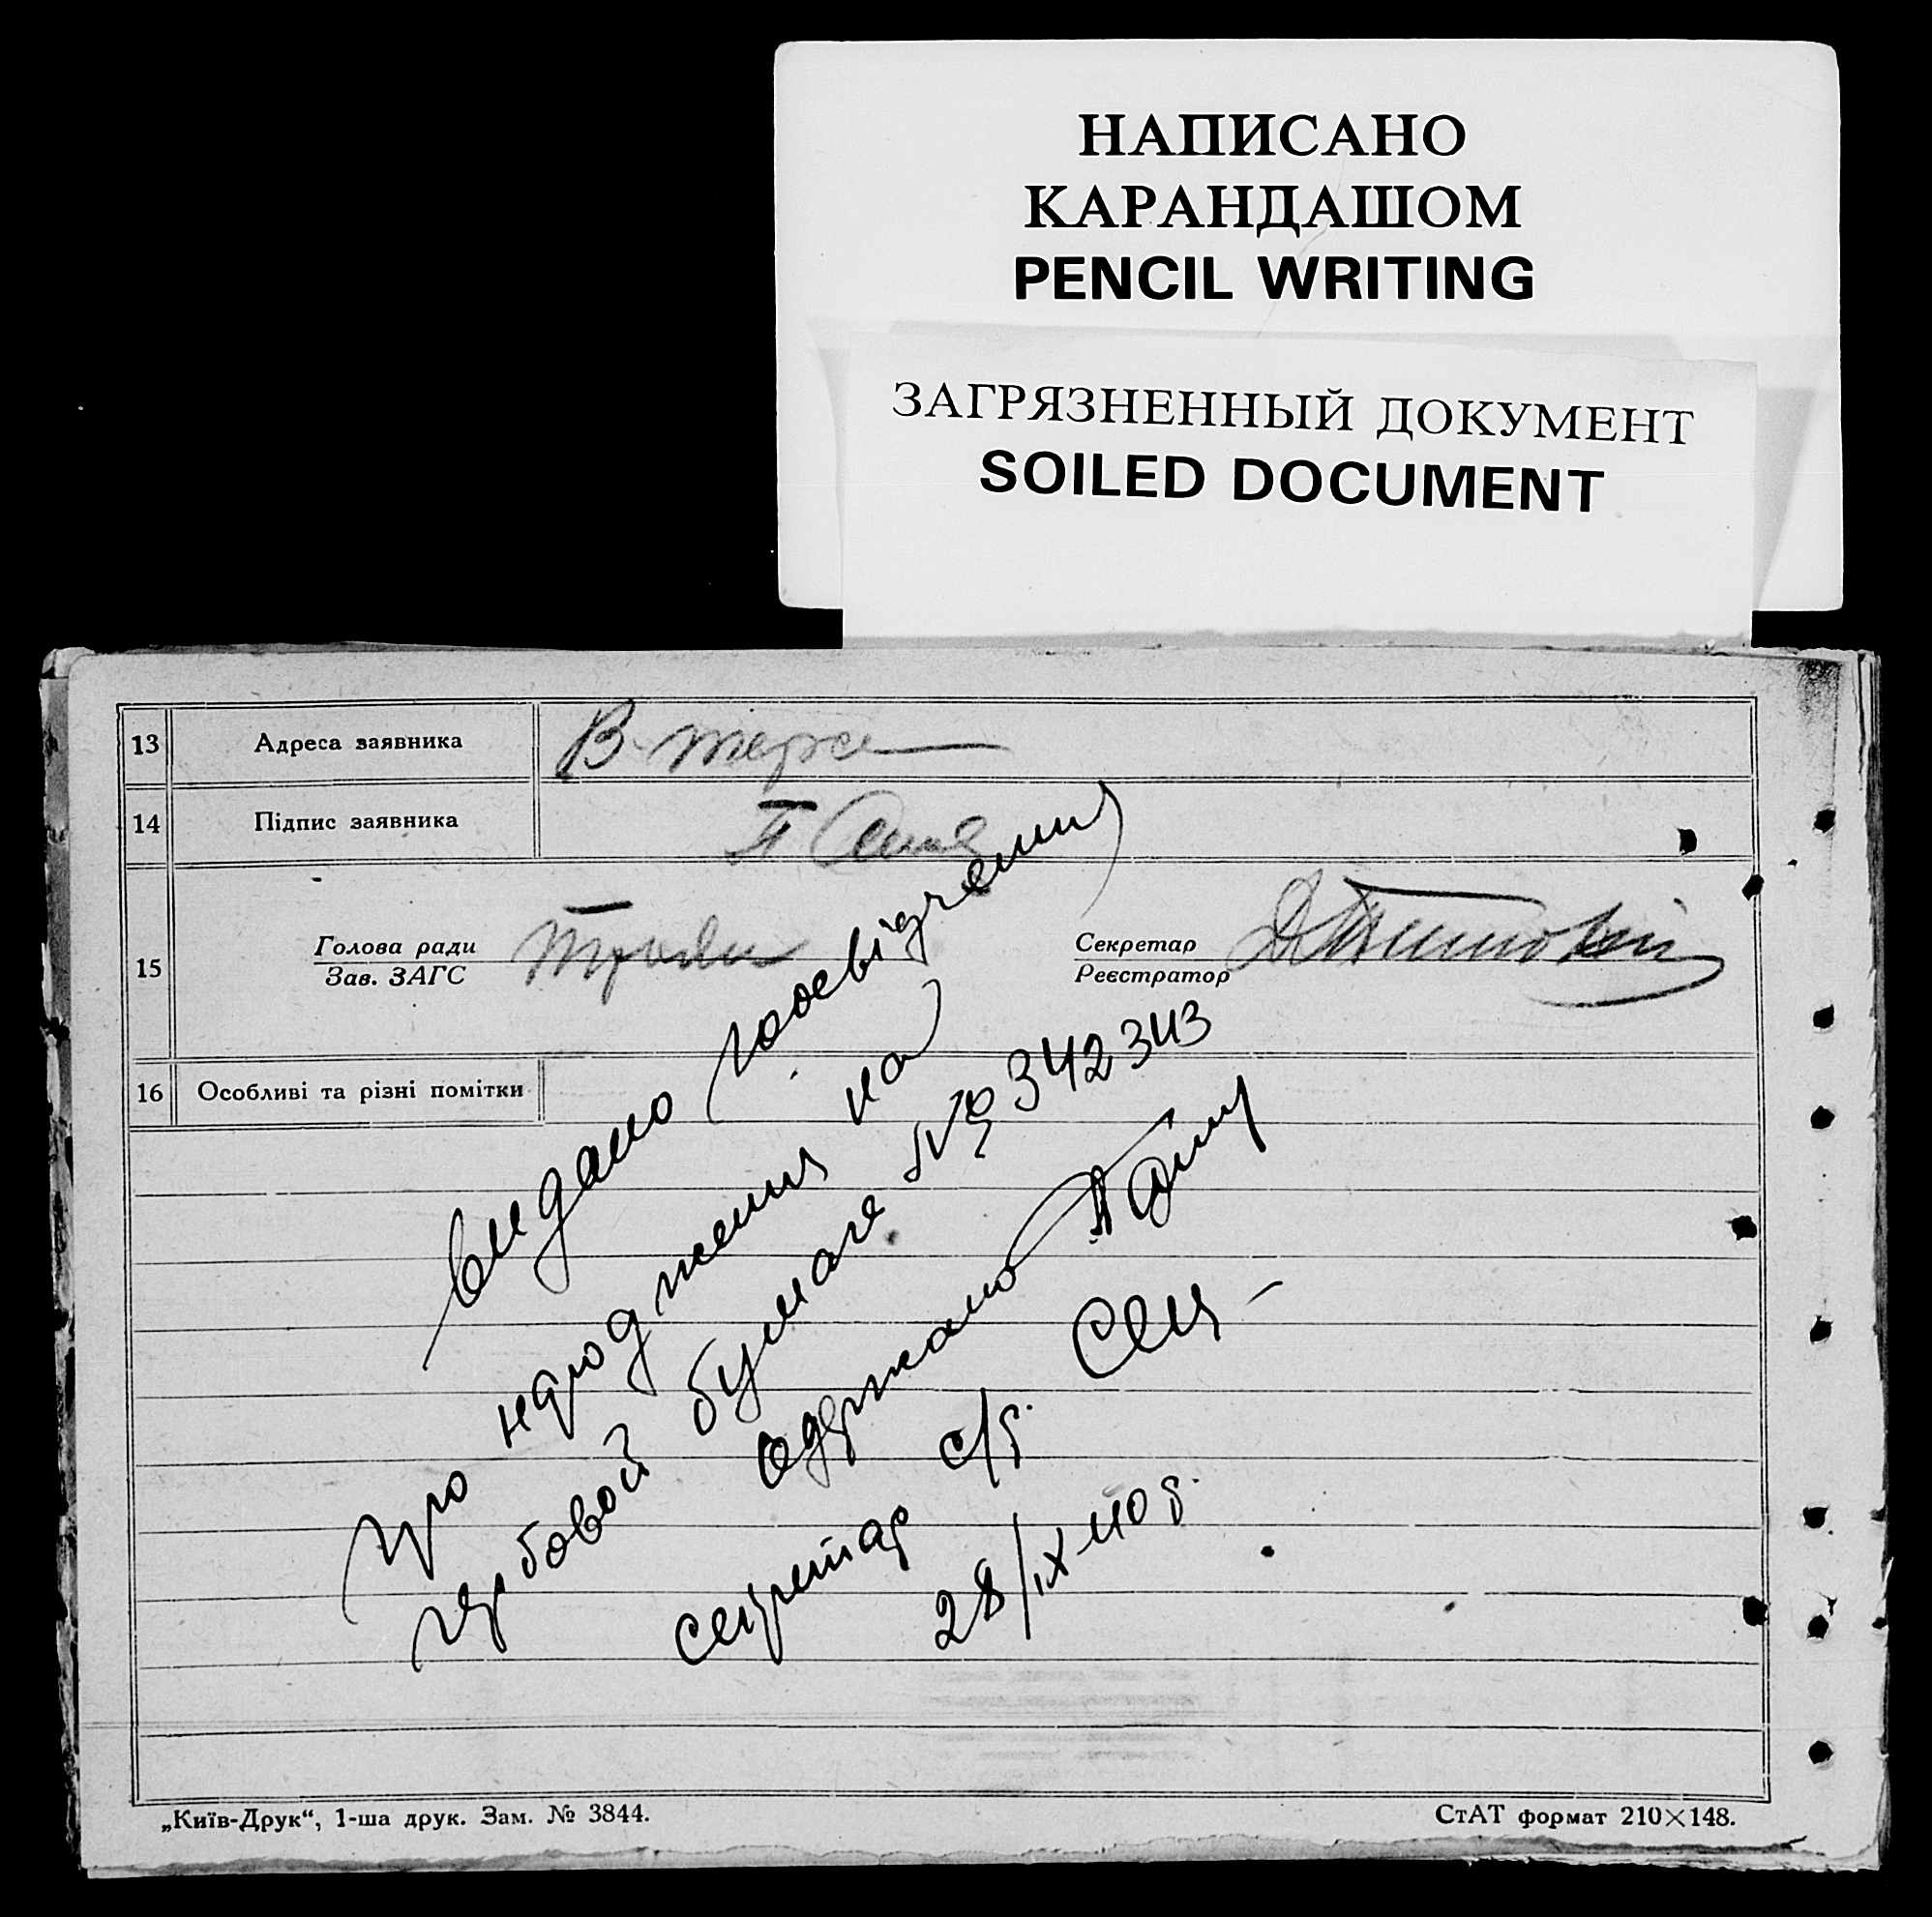 НАПИСАНО
КАРАНДАШОМ
PENCIL WRITING
ЗАГРЯЗНЕННЫЙ ДОКУМЕНТ
SOILED DOCUMENT
13 Адреса заявника
14 Підпис заявника
15 Голова ради
Зав. ЗАГС
Секретар
Реєстратор
16 Особливі та різні помітки
видано посвідчення
про народження на
гербовой бумаге № 342343
одержано
секретар с/р.
28/IX 40 р.
„Київ-Друк“, 1-ша друк. Зам. № 3844.
СтАТ формат 210×148.